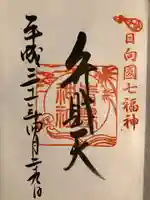 日向國七福神
弁財天
平成二十三年四月二九日